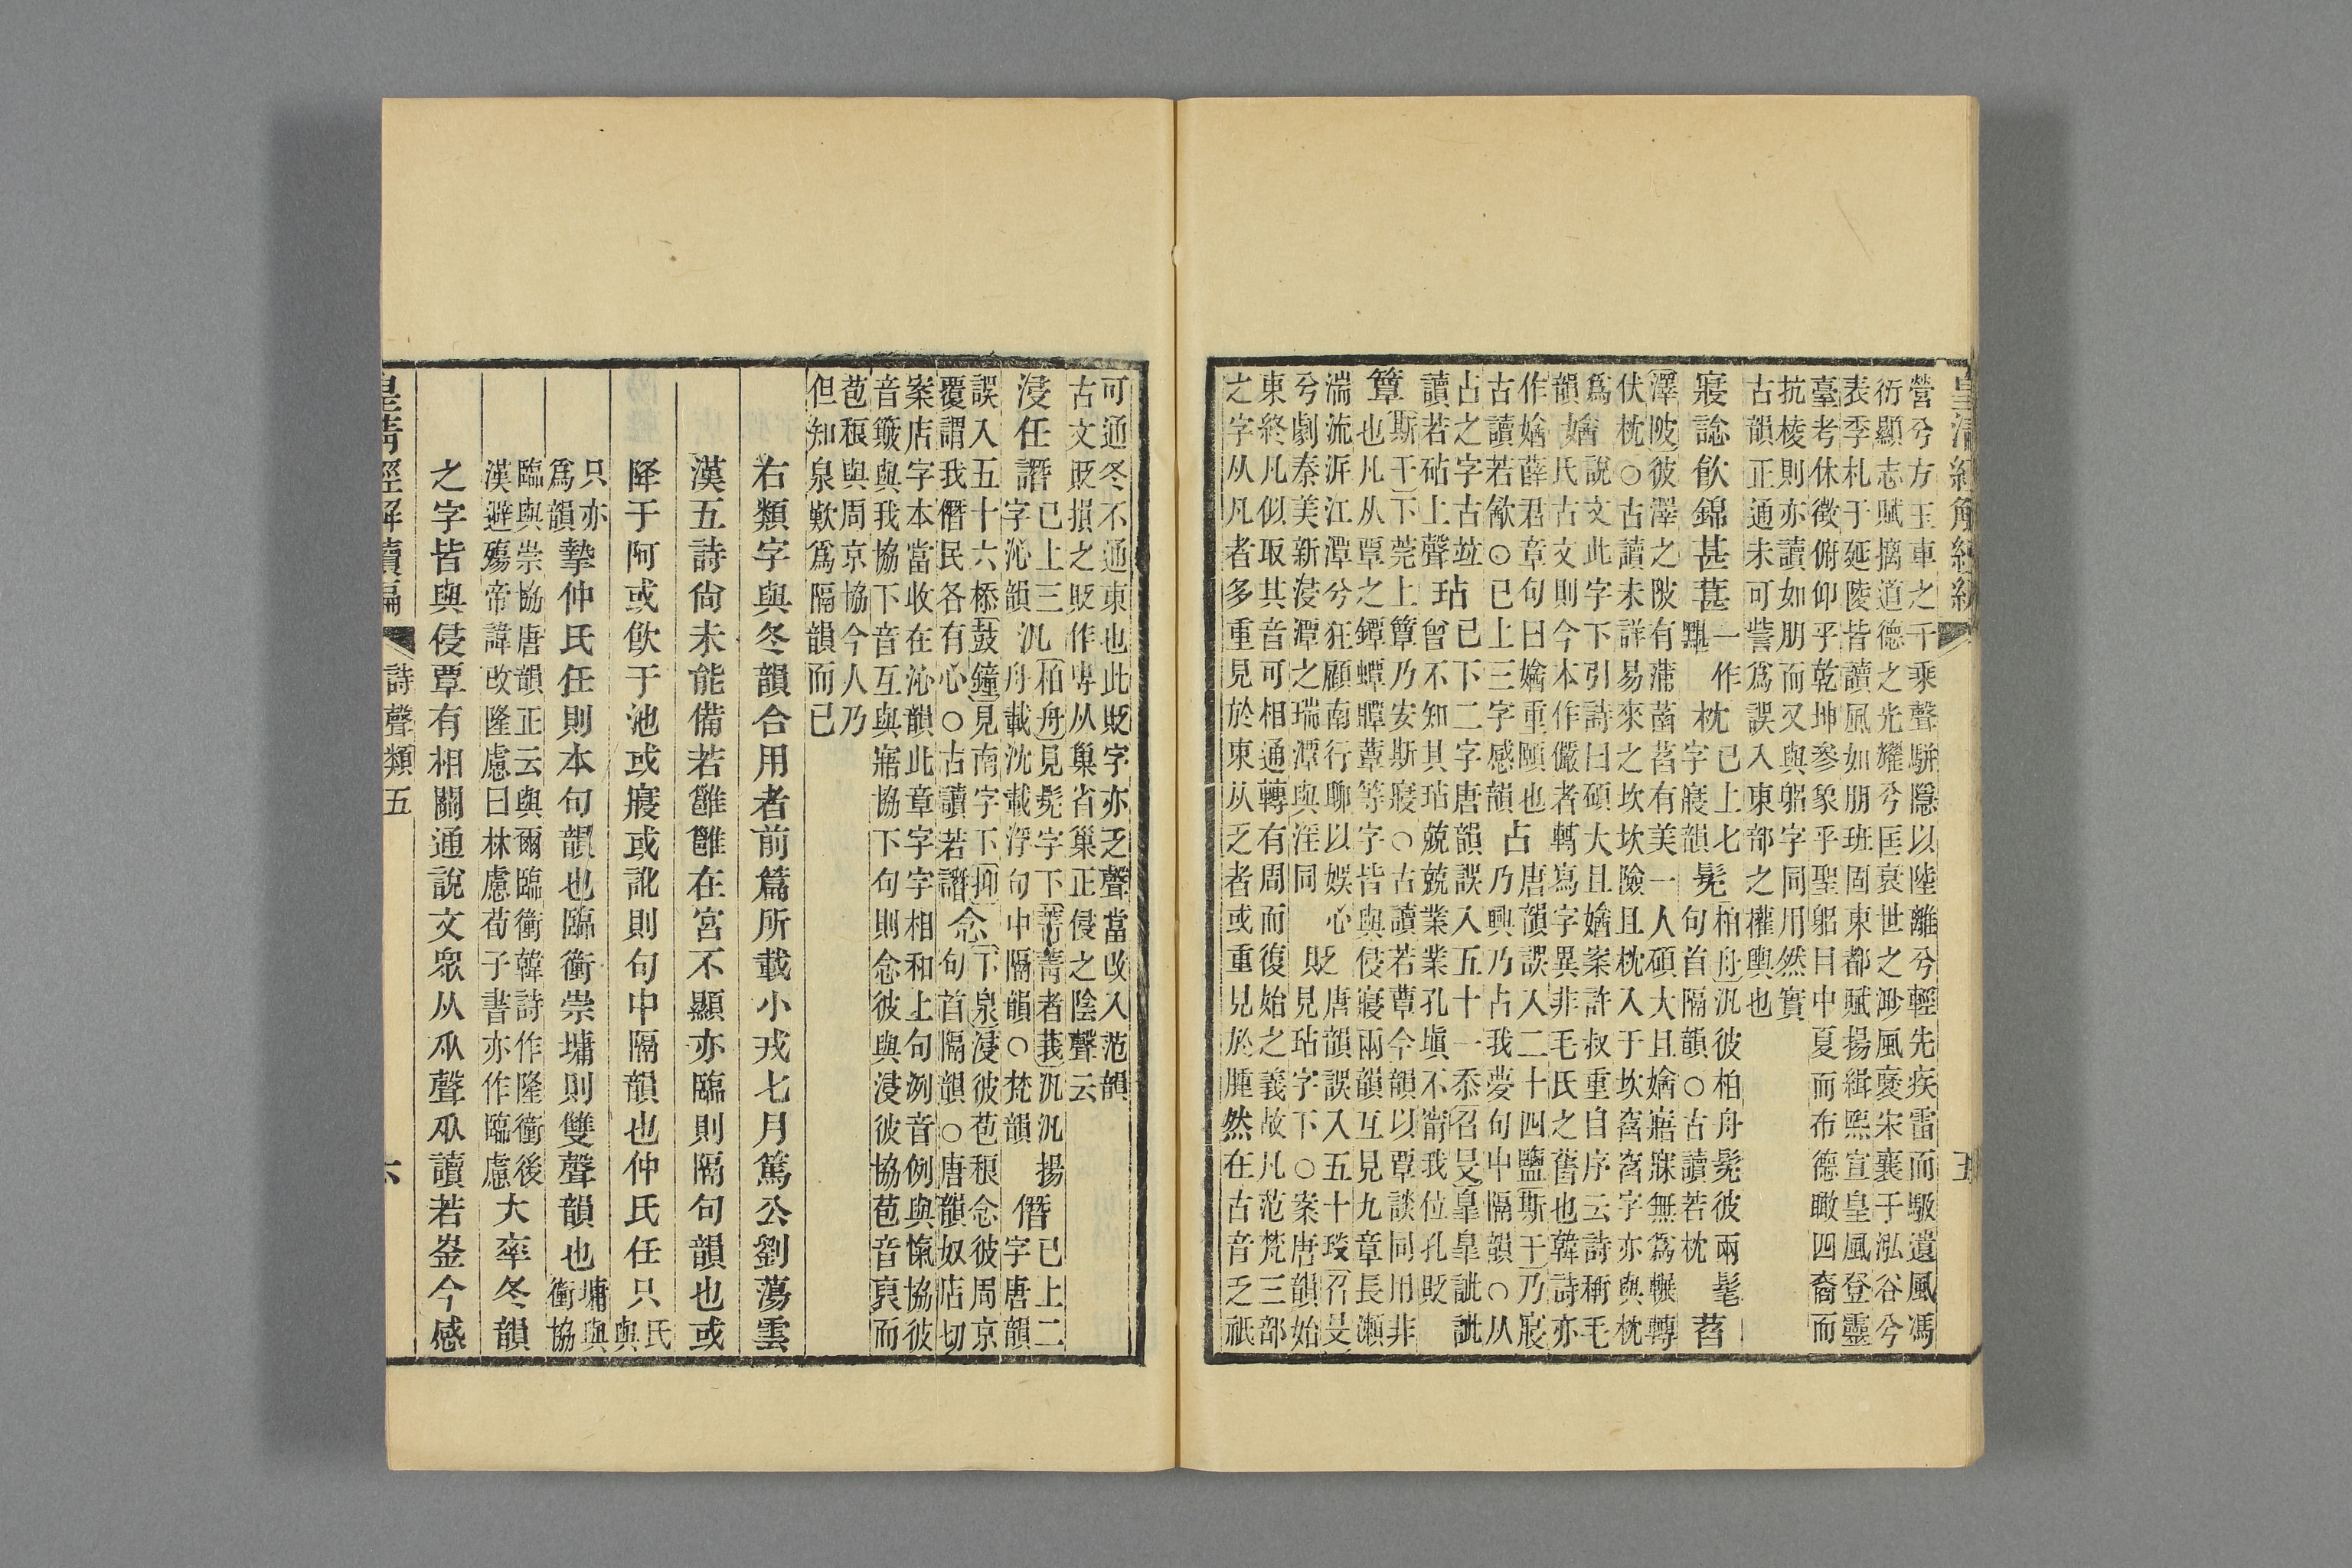 皇清經解續編
五
營兮方玉車之千乘聲駢隱以陸離兮輕先疾雷而馺遺風馮
衍顯志賦摛道德之光耀兮匡衰世之渺風襃宋襄于泓谷兮
表季札于延陵皆讀風如朋班固東都賦揚緝熙宣皇風登靈
臺考休徵俯仰乎乾坤參象乎聖躬目中夏而布德瞰四裔而
抗棱則亦讀如朋而又與躬字同用然實
古韻正通未可訾爲誤入東部之權輿也
寢諗飮錦甚葚一作黮枕已上七字寢韻髧柏舟汎彼柏舟髧彼兩髦句首隔韻○古讀若枕萏
澤陂彼澤之陂有蒲菡萏有美一人碩大且㜝寤寐無爲輾轉
伏枕○古讀未詳易來之坎坎險且枕入于坎窞窞字亦與枕
爲韻㜝說文此字下引詩曰碩大且㜝案許叔重自序云詩稱毛
氏古文則今本作儼者轉寫字異非毛氏之舊也韓詩亦
作㜝薛君章句曰㜝重頤也
古讀若歛○已上三字感韻占唐韻誤入二十四鹽斯干乃寢
乃興乃占我夢句中隔韻○从
占之字古竝
讀若砧上聲玷已下二字唐韻誤入五十一忝召旻皋皋訿訿
曾不知其玷兢兢業業孔塡不甯我位孔貶
簟斯干下莞上簟乃安斯寢○古讀若蕈今韻以覃談同用非
也凡从覃之鐔蟫贉蕈等字皆與侵寢兩韻互見九章長瀨
湍流泝江潭兮狂顧南行聊以娛心
兮劇秦美新浸潭之瑞潭與淫同貶唐韻誤入五十琰召旻
見玷字下○案唐韻始
東終凡似取其音可相通轉有周而復始之義故凡范梵三部
之字从凡者多重見於東从乏者或重見於腫然在古音乏祇
可通冬不通東也此貶字亦乏聲當改入范韻
古文貶損之貶作㝵从巢省巢正侵之陰聲云
浸任譖已上三字沁韻汎柏舟見髧字下菁菁者莪汎汎揚
舟載沈載浮句中隔韻○梵韻僭已上二字唐韻
誤入五十六㮇鼓鐘見南字下抑
覆謂我僭民各有心○古讀若譖念下泉浸彼苞稂念彼周京
句首隔韻○唐韻奴店切
案店字本當收在沁韻此章字字相和上句洌音例與愾協彼
音簸與我協下音互與寤協下句則念彼與浸彼協苞音裒而
苞稂與周京協今人乃
但知泉歎爲隔韻而已
右類字與冬韻合用者前篇所載小戎七月篤公劉蕩雲
漢五詩尙未能備若雝雝在宮不顯亦臨則隔句韻也或
降于阿或飮于池或寢或訛則句中隔韻也仲氏任只氏與
只亦爲韻摯仲氏任則本句韻也臨衝崇墉則雙聲韻也墉與衝協
臨與崇協唐韻正云與爾臨衝韓詩作隆衝後
漢避殤帝諱改隆慮曰林慮荀子書亦作臨慮大率冬韻
之字皆與侵覃有相關通說文眾从乑聲乑讀若崟今感
皇清經解續編
詩聲類五
六